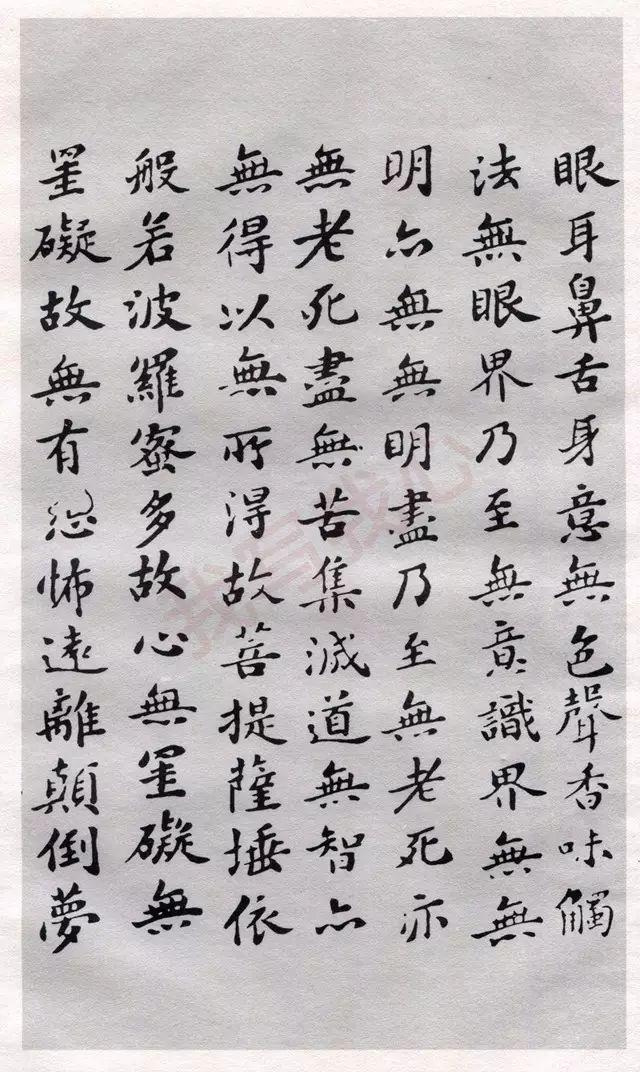 眼耳鼻舌身意無色聲香味觸
法無眼界乃至無意識界無無
明亦無無明盡乃至無老死亦
無老死盡無苦集滅道無智亦
無得以無所得故菩提薩埵依
般若波羅蜜多故心無罣礙無
罣礙故無有恐怖遠離顛倒夢
我写我心